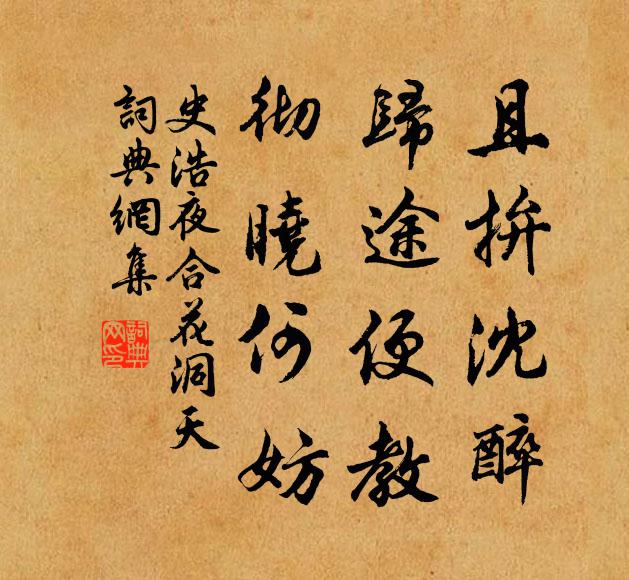 且拚沈醉
歸途便教
彻曉何妨
史浩夜合花洞天
詞典網集
詞典网印